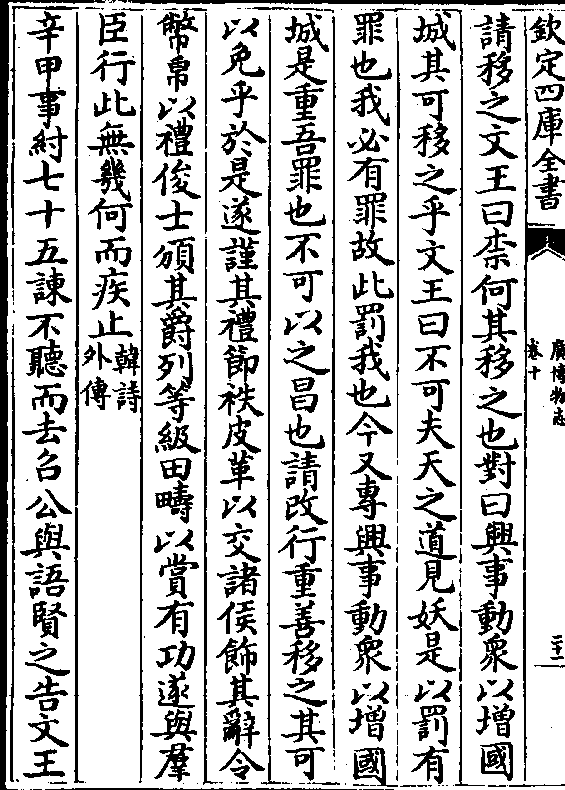 欽定四庫全書
廣博物志
卷十
二十一
請移之文王曰柰何其移之也對曰興事動衆以增國
城其可移之乎文王曰不可夫天之道見妖是以罰有
罪也我必有罪故此罰我也今又專興事動衆以增國
城是重吾罪也不可以之昌也請改行重善移之其可
以免乎於是遂謹其禮節袟皮革以交諸侯飾其辭令
幣帛以禮俊士頒其爵列等級田疇以賞有功遂與羣
臣行此無幾何而疾止韓詩外傳
辛甲事紂七十五諫不聽而去召公與語賢之告文王